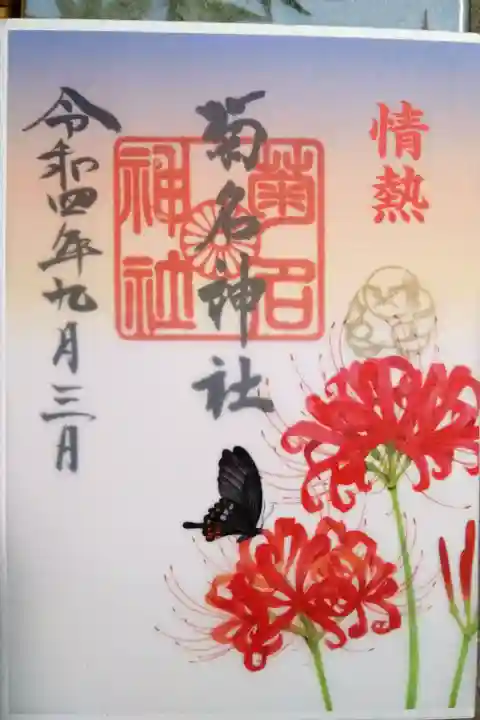 情熱
菊名神社
菊名
神社
令和四年九月三日